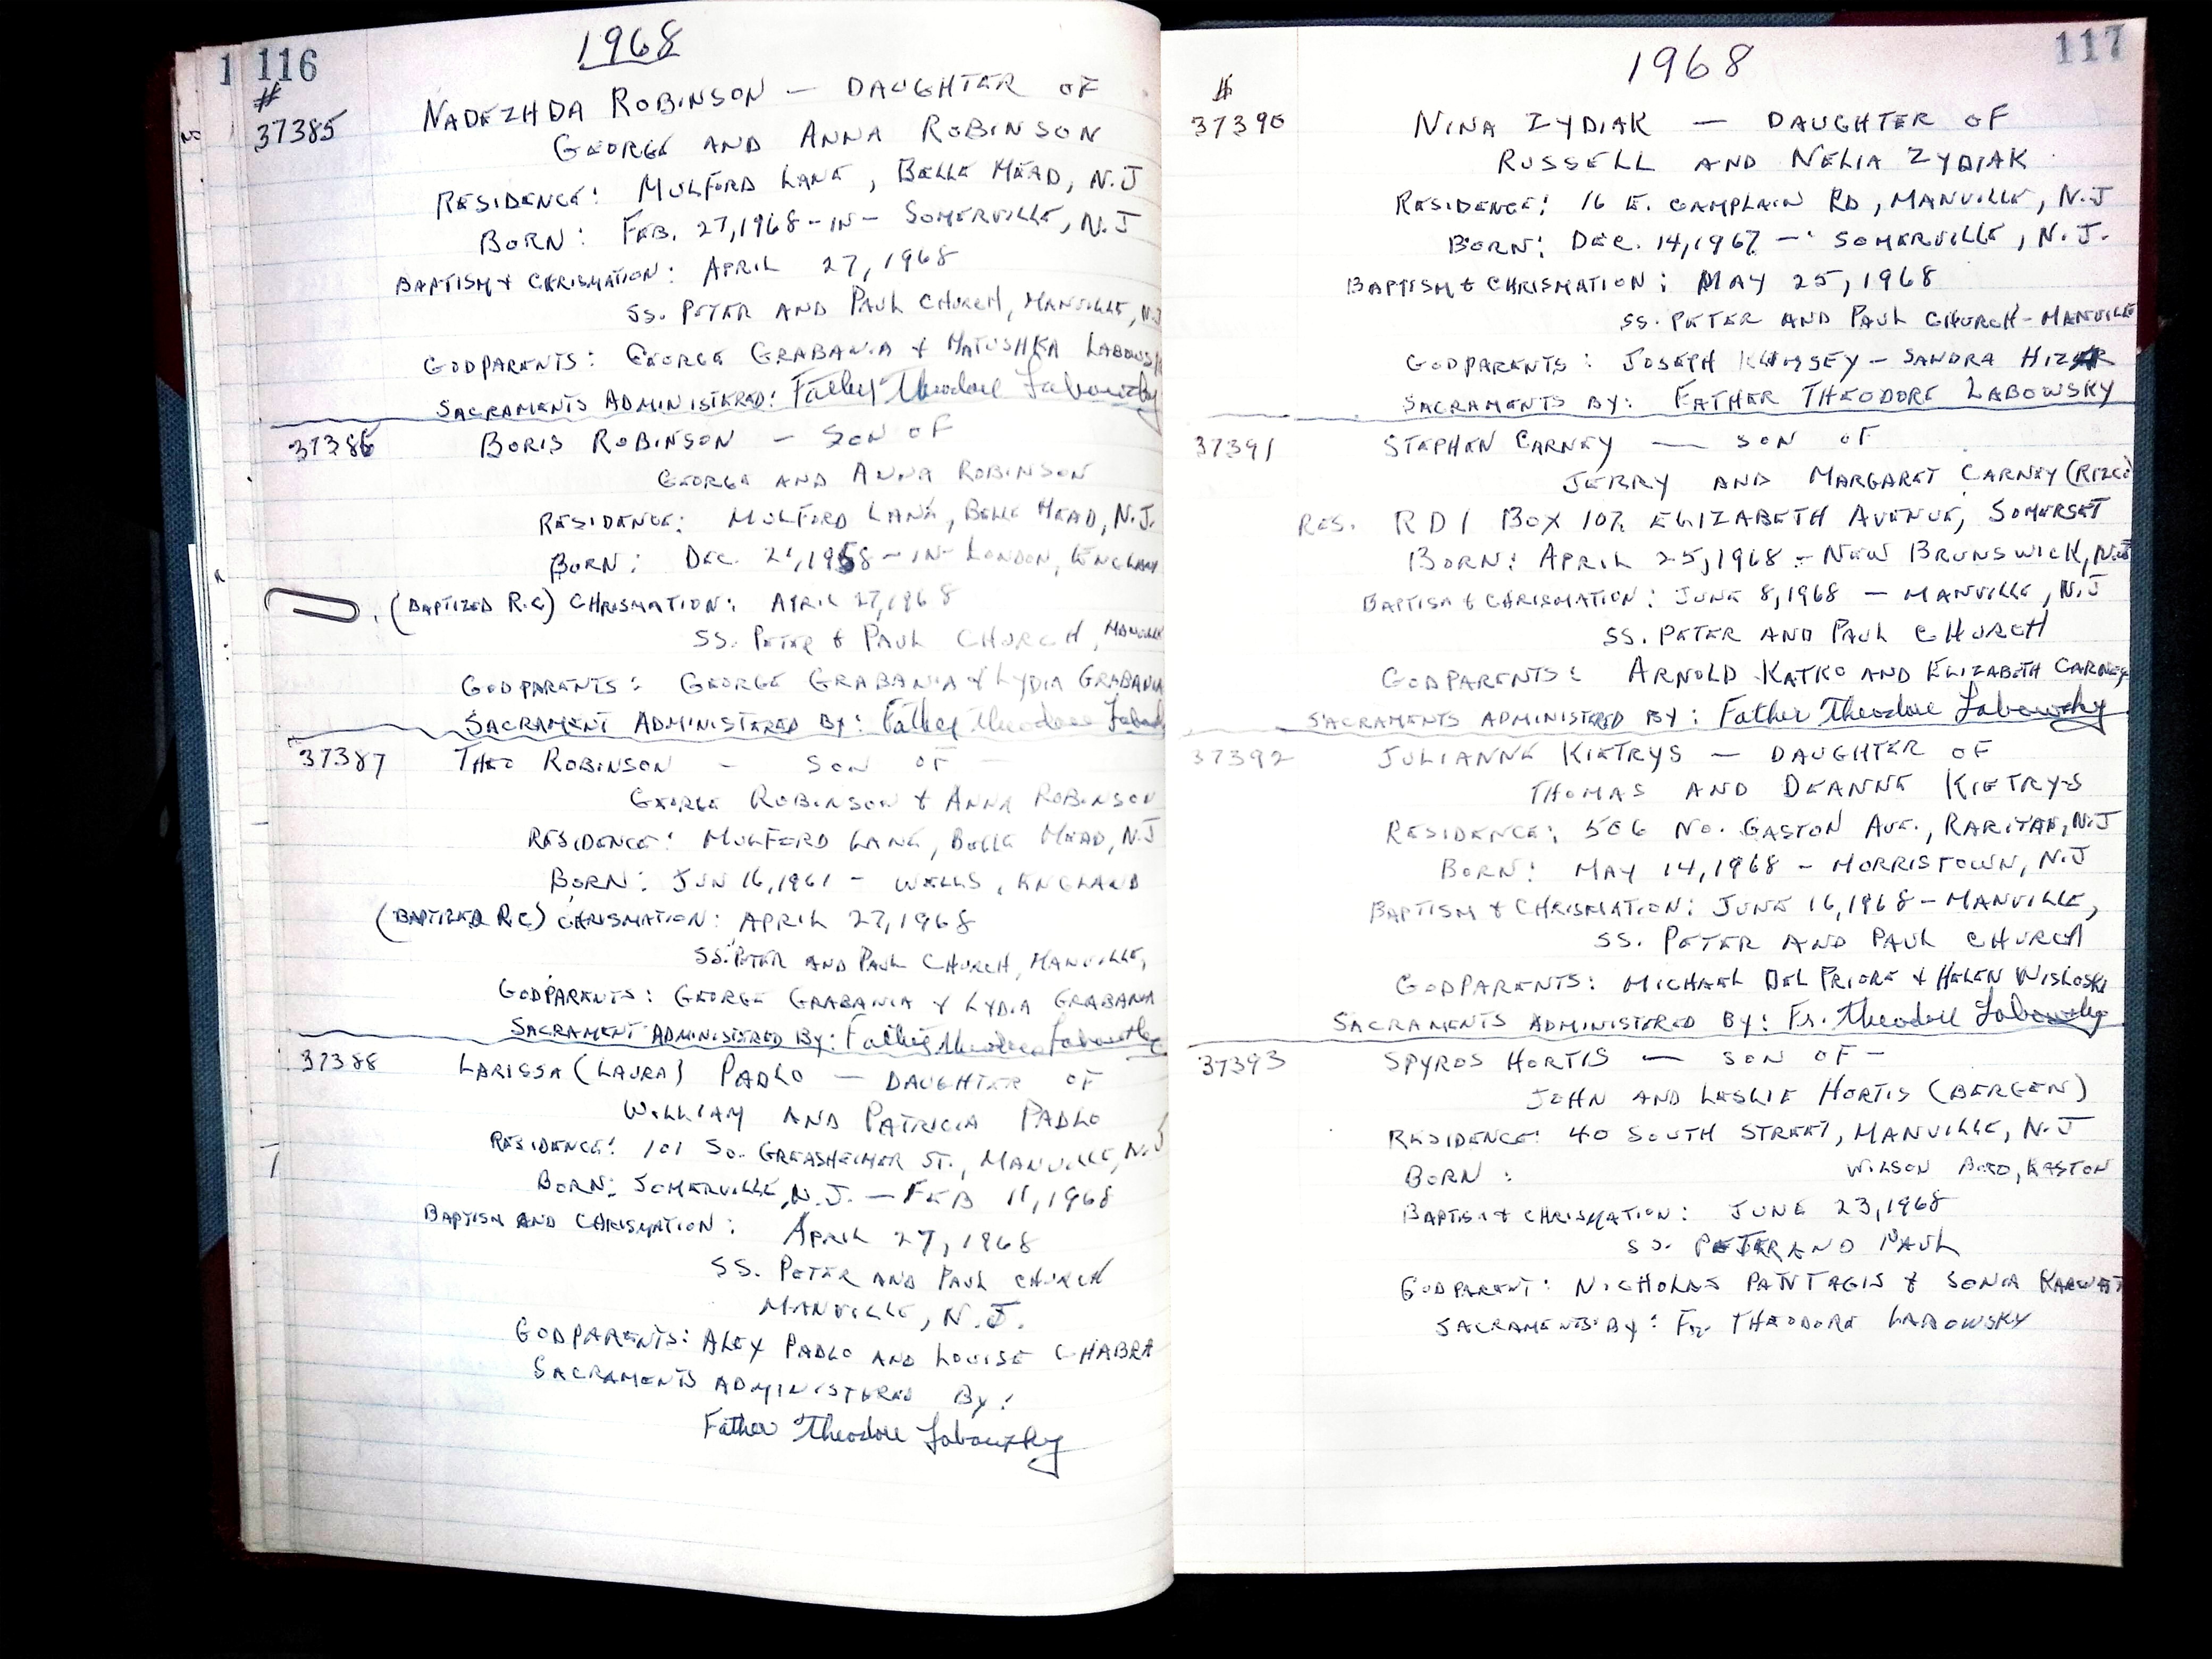 116
1968
#
37385 NADEZHDA ROBINSON — DAUGHTER OF
GEORGE AND ANNA ROBINSON
RESIDENCE: MULFORD LANE, BELLE MEAD, N.J
BORN: FEB. 27, 1968 - IN - SOMERVILLE, N.J
BAPTISM & CHRISMATION: APRIL 27, 1968
SS. PETER AND PAUL CHURCH, MANVILLE, N.J
GODPARENTS: GEORGE GRABANIA & MATUSHKA
SACRAMENTS ADMINISTERED: Father Theodore Labowsky
37386 BORIS ROBINSON — SON OF
GEORGE AND ANNA ROBINSON
RESIDENCE: MULFORD LANE, BELLE MEAD, N.J.
BORN: DEC. 1958 - IN - LONDON,
(BAPTIZED R.C) CHRISMATION: APRIL 27, 1968
SS. PETER & PAUL CHURCH, MANVILLE
GODPARENTS: GEORGE GRABANIA & LYDIA GRABANIA
SACRAMENT ADMINISTERED BY: Father Theodore
37387 THEO ROBINSON — SON OF —
GEORGE ROBINSON & ANNA ROBINSON
RESIDENCE: MULFORD LANE, BELLE MEAD, N.J
BORN: JUN 16, 1961 - WELLS, ENGLAND
(BAPTIZED R.C) CHRISMATION: APRIL 27, 1968
SS. PETER AND PAUL CHURCH, MANVILLE,
GODPARENTS: GEORGE GRABANIA & LYDIA GRABANIA
SACRAMENT ADMINISTERED BY: Father Theodore Labowsky
37388 LARISSA (LAURA) PADLO — DAUGHTER OF
WILLIAM AND PATRICIA PADLO
RESIDENCE: 101 SO. GREASHEIMER ST., MANVILLE, N.J
BORN: SOMERVILLE, N.J. — FEB 11, 1968
BAPTISM AND CHRISMATION: APRIL 27, 1968
SS. PETER AND PAUL CHURCH
MANVILLE, N.J.
GODPARENTS: ALEX PADLO AND LOUISE CHABRA
SACRAMENTS ADMINISTERED BY:
Father Theodore Labowsky
117
1968
#
37390 NINA ZYDIAK — DAUGHTER OF
RUSSELL AND NELIA ZYDIAK
RESIDENCE: 16 E. CAMPLAIN RD, MANVILLE, N.J
BORN: DEC. 14, 1967 — SOMERVILLE, N.J.
BAPTISM & CHRISMATION: MAY 25, 1968
SS. PETER AND PAUL CHURCH - MANVILLE
GODPARENTS: JOSEPH — SANDRA
SACRAMENTS BY: FATHER THEODORE LABOWSKY
37391 STEPHEN CARNEY — SON OF
JERRY AND MARGARET CARNEY
RES. RD 1 BOX 107 ELIZABETH AVENUE, SOMERSET
BORN: APRIL 25, 1968 - NEW BRUNSWICK, N.J
BAPTISM & CHRISMATION: JUNE 8, 1968 — MANVILLE, N.J
SS. PETER AND PAUL CHURCH
GODPARENTS: ARNOLD KATKO AND ELIZABETH CARNEY
SACRAMENTS ADMINISTERED BY: Father Theodore Labowsky
37392 JULIANNE KIETRYS — DAUGHTER OF
THOMAS AND DEANNE KIETRYS
RESIDENCE: 506 NO. GASTON AVE., RARITAN, N.J
BORN: MAY 14, 1968 - MORRISTOWN, N.J
BAPTISM & CHRISMATION: JUNE 16, 1968 - MANVILLE,
SS. PETER AND PAUL CHURCH
GODPARENTS: MICHAEL DEL PRIORE & HELEN WISLOSKI
SACRAMENTS ADMINISTERED BY: Fr. Theodore Labowsky
37393 SPYROS HORTIS — SON OF —
JOHN AND LESLIE HORTIS (BERGEN)
RESIDENCE: 40 SOUTH STREET, MANVILLE, N.J
BORN: WILSON BORO, EASTON
BAPTISM & CHRISMATION: JUNE 23, 1968
SS. PETER AND PAUL
GODPARENT: NICHOLAS PANTAGIS & SONIA
SACRAMENTS BY: FR. THEODORE LABOWSKY